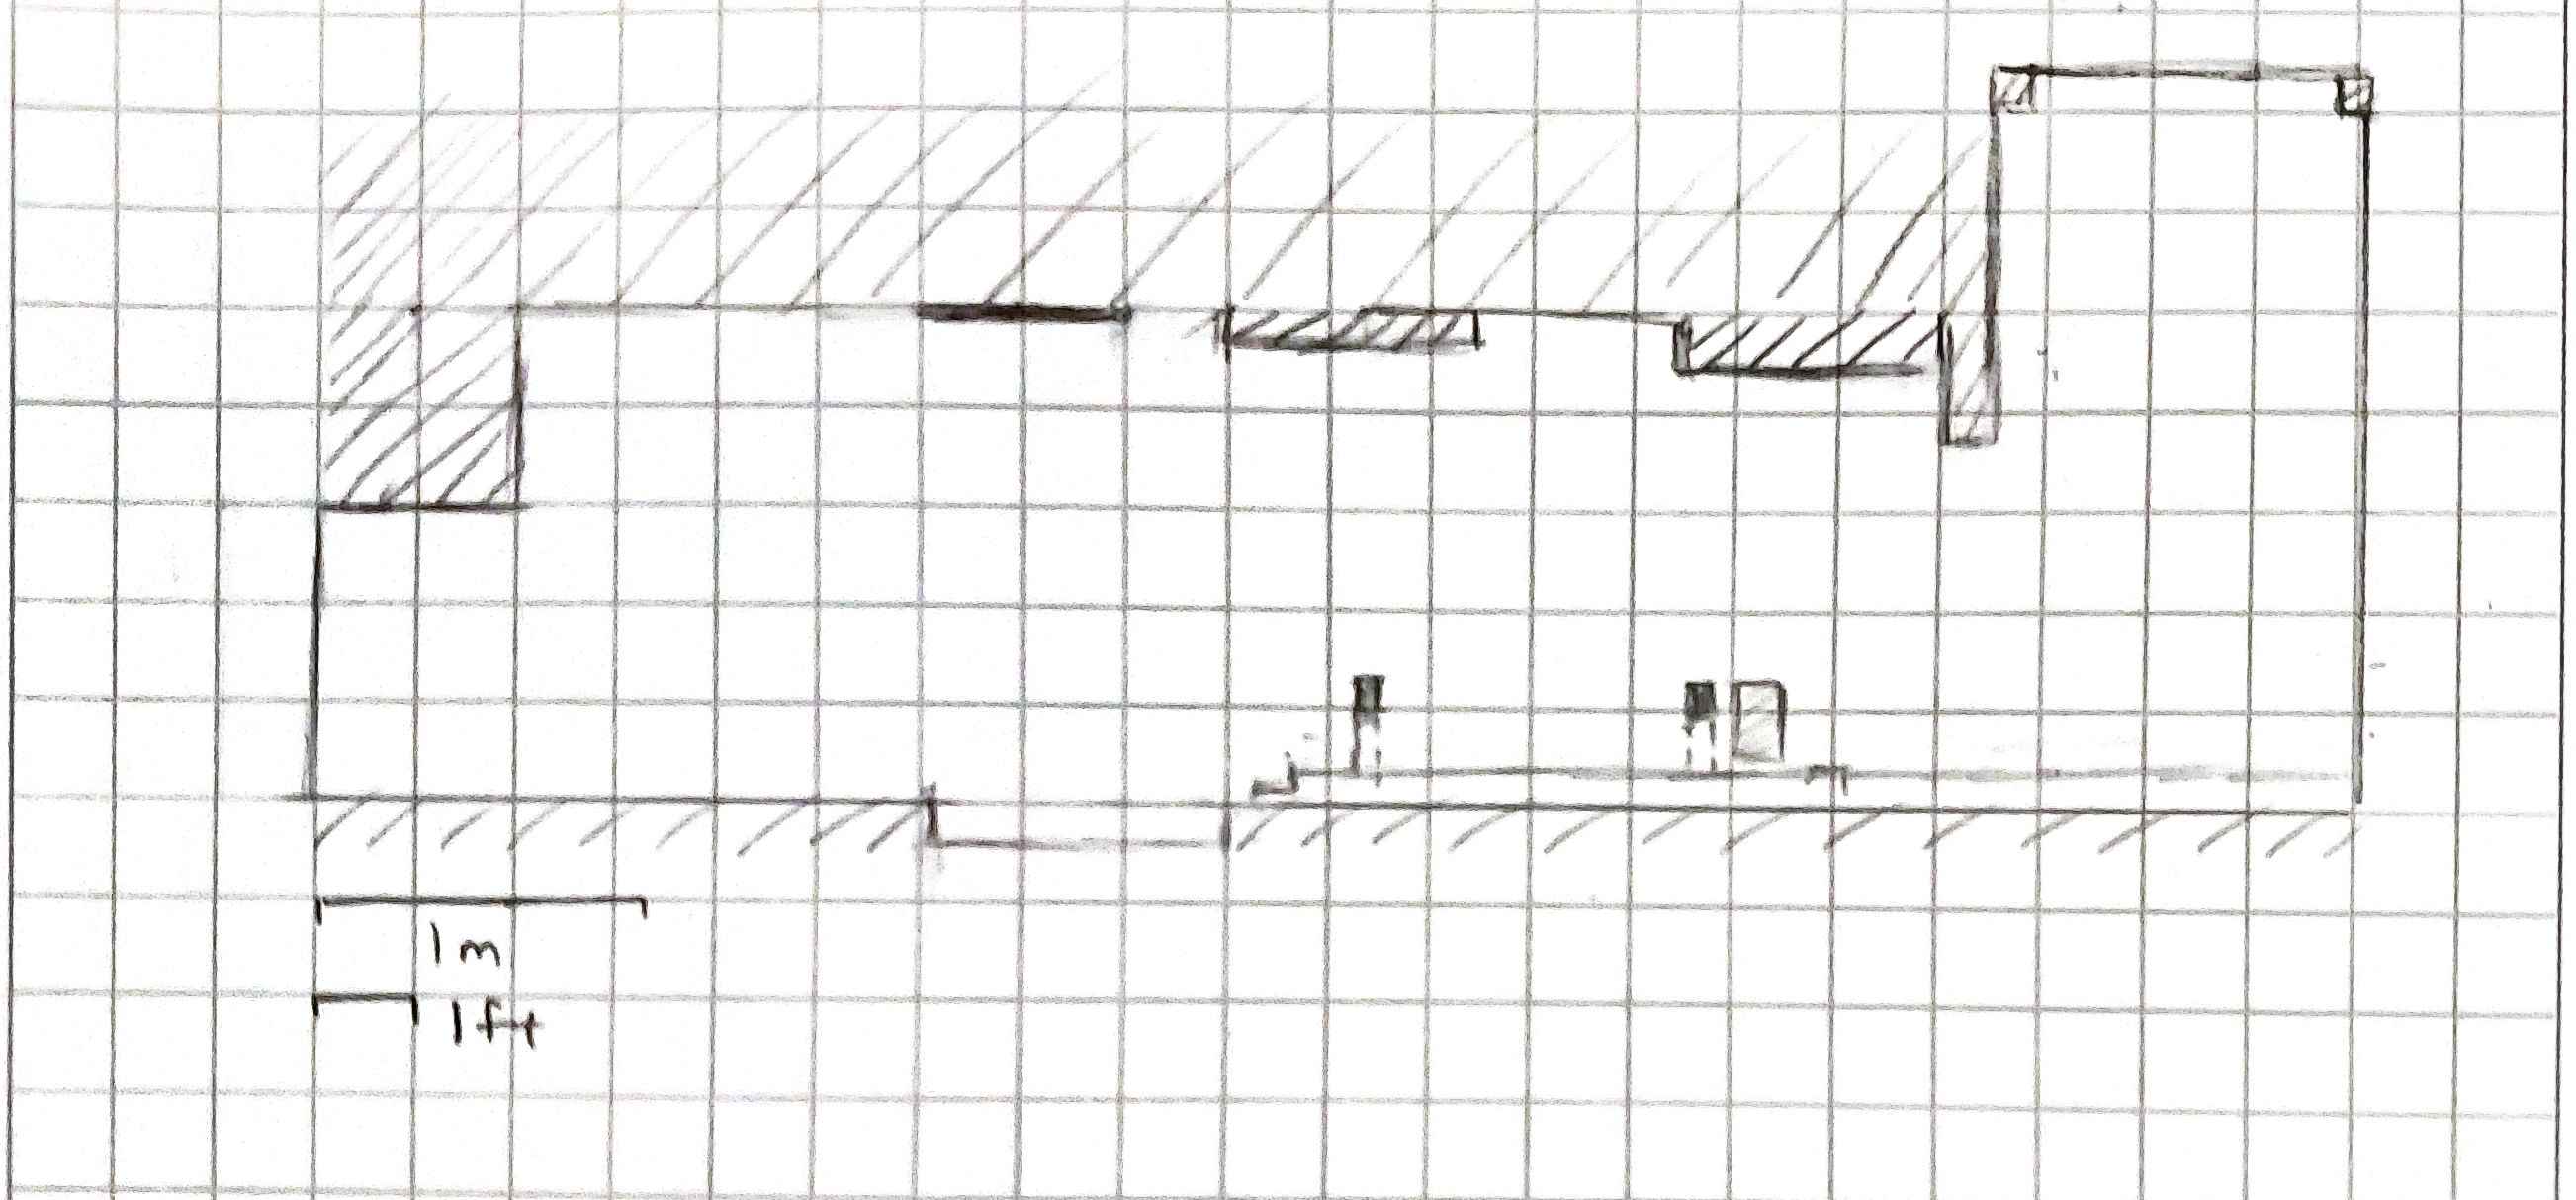 1m
1ft